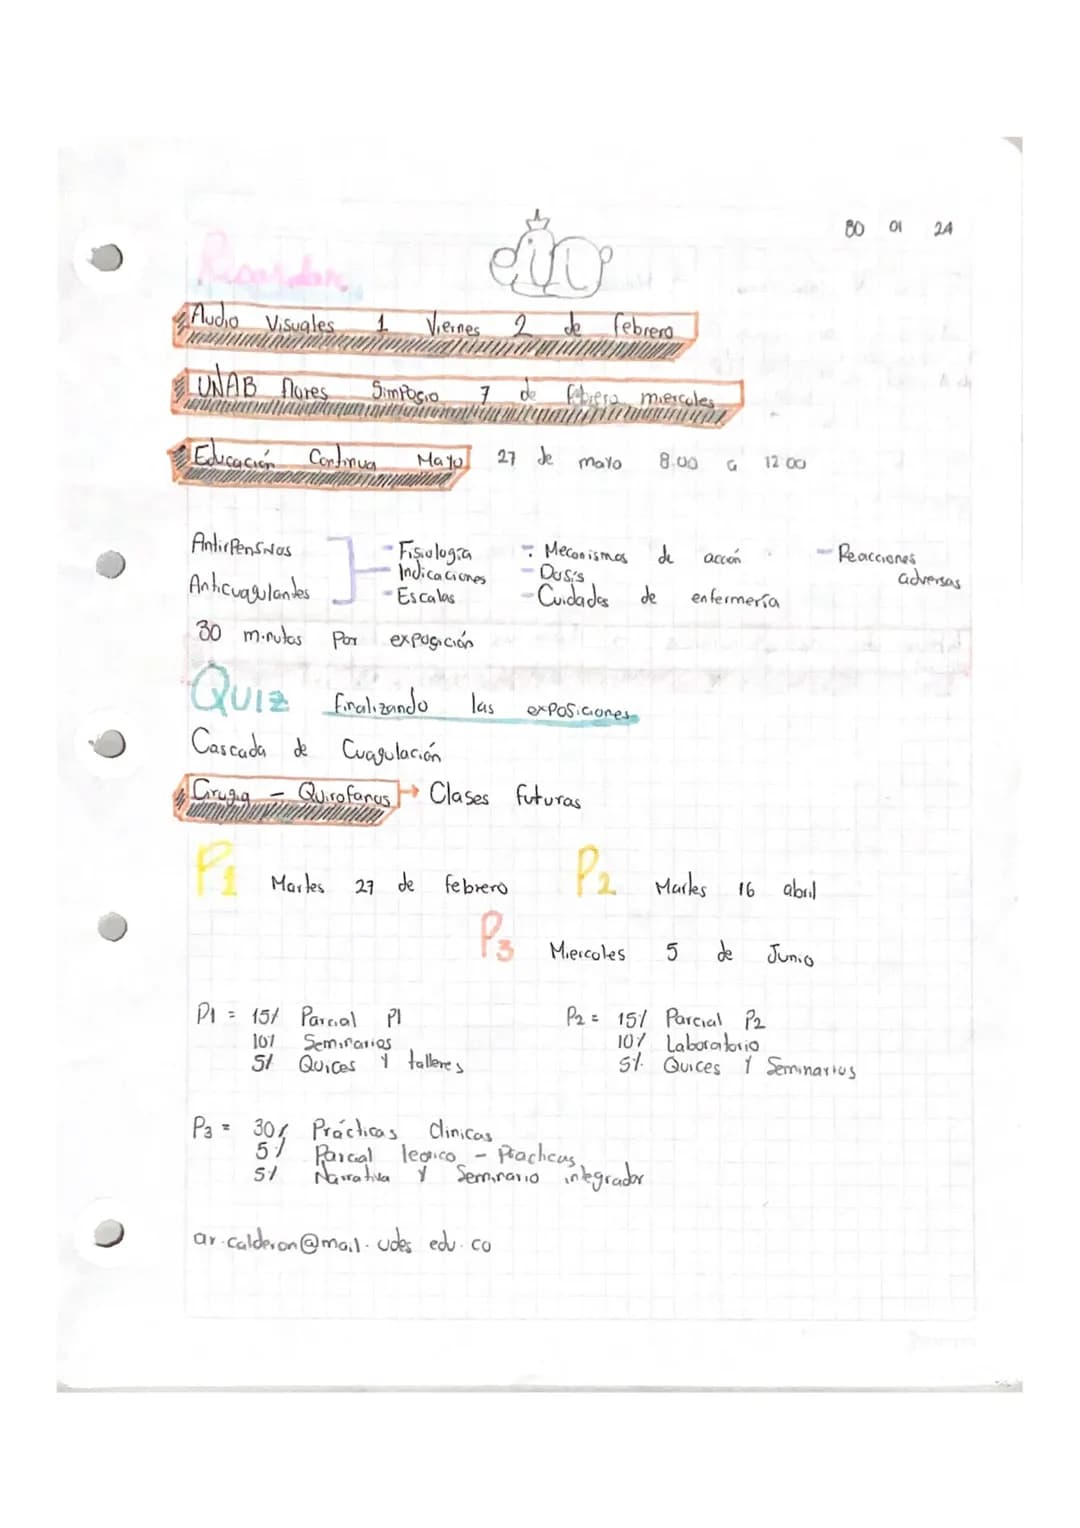 30 01 24
Recordar
Audio Visuales 1 Viernes 2 de febrero
UNAB flores Simposio 7 de febrero miercoles
Educación Continua Mayo 27 de mayo 8:00 a 12:00
Antirpensivos
Anticuagulantes
- Fisiología
- Indicaciones
- Escalas
- Meconismos de acción
- Dosis
- Cuidados de enfermería
- Reacciones adversas
30 minutos por exposición
QUIZ finalizando las exposiciones
Cascada de Cuagulación
Cirugia - Quirofanos → Clases futuras
P1 Martes 27 de febrero
P2 Martes 16 abril
P3 Miercoles 5 de Junio
P1 = 15% Parcial P1
10% Seminarios
5% Quices y talleres
P2 = 15% Parcial P2
10% Laboratorio
5% Quices y Seminarios
P3 = 30% Prácticas Clinicas
5% Parcial teorico - Practicas
5% Narrativa y Seminario integrador
ar.calderon@mail.udes.edu.co